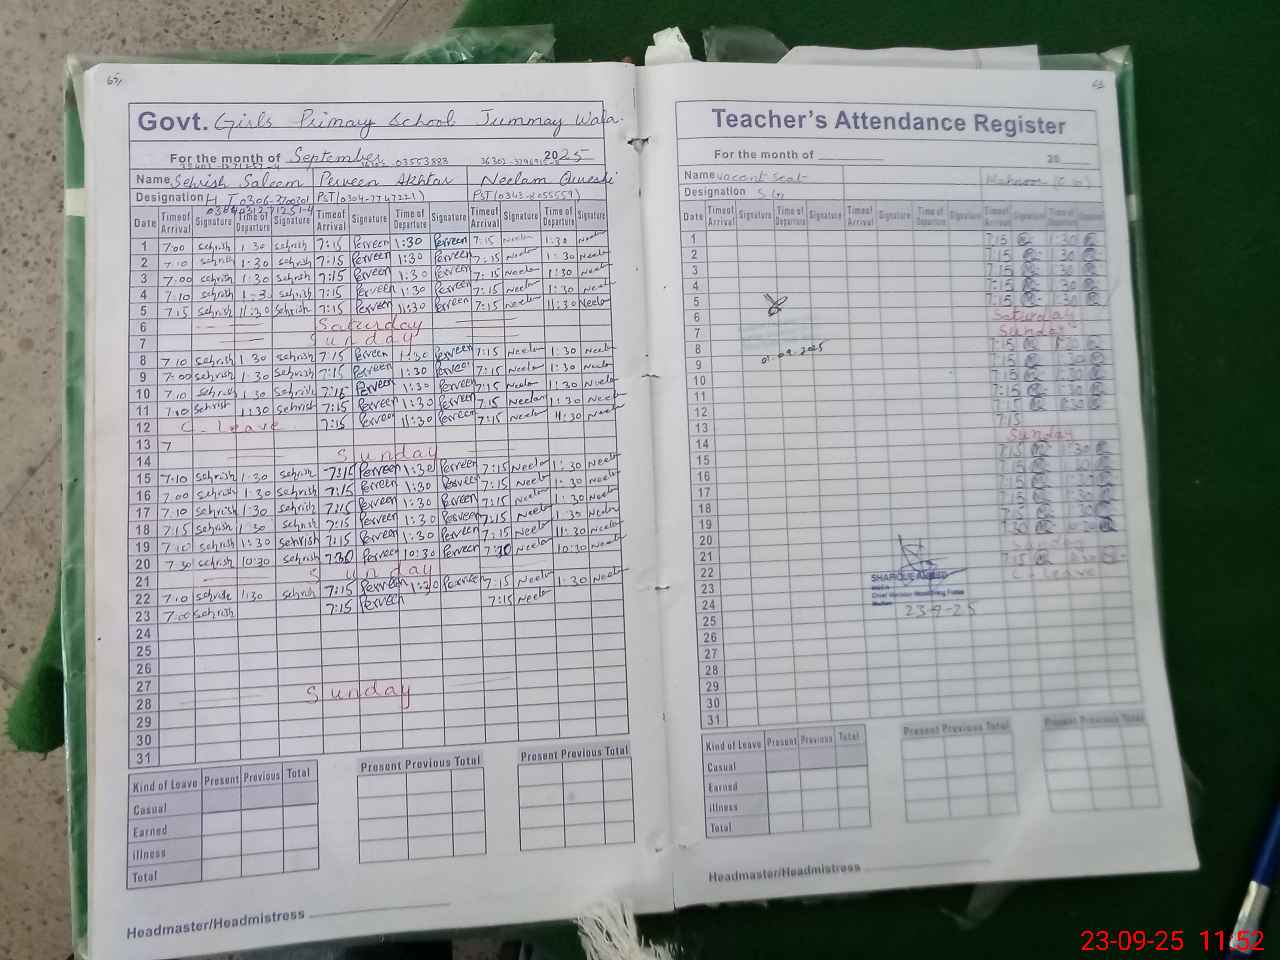 65,
Govt. Girls Primary School Jummay Wala.
For the month of September 2025
Name Sehrish Saleem Perveen Akhtar Neelam Qureshi
Designation H T PST(0304-7747221) PST(0343-8055557)
Date Time of Arrival Signature Time of Departure Signature Time of Arrival Signature Time of Departure Signature Time of Arrival Signature Time of Departure Signature
1 7:00 sehrish 1:30 sehrish 7:15 Perveen 1:30 Perveen 7:15 Neelam 1:30 Neelam
2 7:10 sehrish 1:30 sehrish 7:15 Perveen 1:30 Perveen 7:15 Neelam 1:30 Neelam
3 7:00 sehrish 1:30 sehrish 7:15 Perveen 1:30 Perveen 7:15 Neelam 1:30 Neelam
4 7:10 sehrish 1:3 sehrish 7:15 Perveen 1:30 Perveen 7:15 Neelam 1:30 Neelam
5 7:15 sehrish 11:30 sehrish 7:15 Perveen 11:30 Perveen 7:15 Neelam 11:30 Neelam
6 Saturday
7 Sunday
8 7:10 sehrish 1:30 sehrish 7:15 Perveen 1:30 Perveen 7:15 Neelam 1:30 Neelam
9 7:00 sehrish 1:30 sehrish 7:15 Perveen 1:30 Perveen 7:15 Neelam 1:30 Neelam
10 7:10 sehrish 1:30 sehrish 7:15 Perveen 1:30 Perveen 7:15 Neelam 1:30 Neelam
11 7:10 sehrish 1:30 sehrish 7:15 Perveen 1:30 Perveen 7:15 Neelam 1:30 Neelam
12 C. leave 7:15 Perveen 11:30 Perveen 7:15 Neelam 11:30 Neelam
13 7
14 Sunday
15 7:10 sehrish 1:30 sehrish 7:15 Perveen 1:30 Perveen 7:15 Neelam 1:30 Neelam
16 7:00 sehrish 1:30 sehrish 7:15 Perveen 1:30 Perveen 7:15 Neelam 1:30 Neelam
17 7:10 sehrish 1:30 sehrish 7:15 Perveen 1:30 Perveen 7:15 Neelam 1:30 Neelam
18 7:15 sehrish 1:30 sehrish 7:15 Perveen 1:30 Perveen 7:15 Neelam 1:30 Neelam
19 7:10 sehrish 1:30 sehrish 7:15 Perveen 1:30 Perveen 7:15 Neelam 11:30 Neelam
20 7:30 sehrish 10:30 sehrish 7:30 Perveen 10:30 Perveen 7:30 Neelam 10:30 Neelam
21 Sunday
22 7:10 sehrish 1:30 sehrish 7:15 Perveen 1:30 Perveen 7:15 Neelam 1:30 Neelam
23 7:00 sehrish 7:15 Perveen 7:15 Neelam
24
25
26
27
28 Sunday
29
30
31
Kind of Leave Present Previous Total Present Previous Total Present Previous Total
Casual
Earned
illness
Total
Headmaster/Headmistress
63
Teacher's Attendance Register
For the month of 20
Name vacant seat Mahnoor
Designation
Date Time of Arrival Signature Time of Departure Signature Time of Arrival Signature Time of Departure Signature Time of Arrival Signature Time of Departure
1 7:15 1:30
2 7:15 1:30
3 7:15 1:30
4 7:15 1:30
5 7:15 1:30
6 Saturday
7 Sunday
8 7:15
01-09-2025
9 7:15 1:30
10 7:15 1:30
11 7:15 1:30
12 7:15
13 7:15
14 Sunday
15 7:15 1:30
16 7:15
17 7:15 1:30
18 7:15 1:30
19
20
21
22 C. leave
23
24
25
26
27
28
29
30
31
SHARIQUE
23-9-25
Kind of Leave Present Previous Total Present Previous Total Present Previous Total
Casual
Earned
illness
Total
Headmaster/Headmistress
23-09-25 11:52